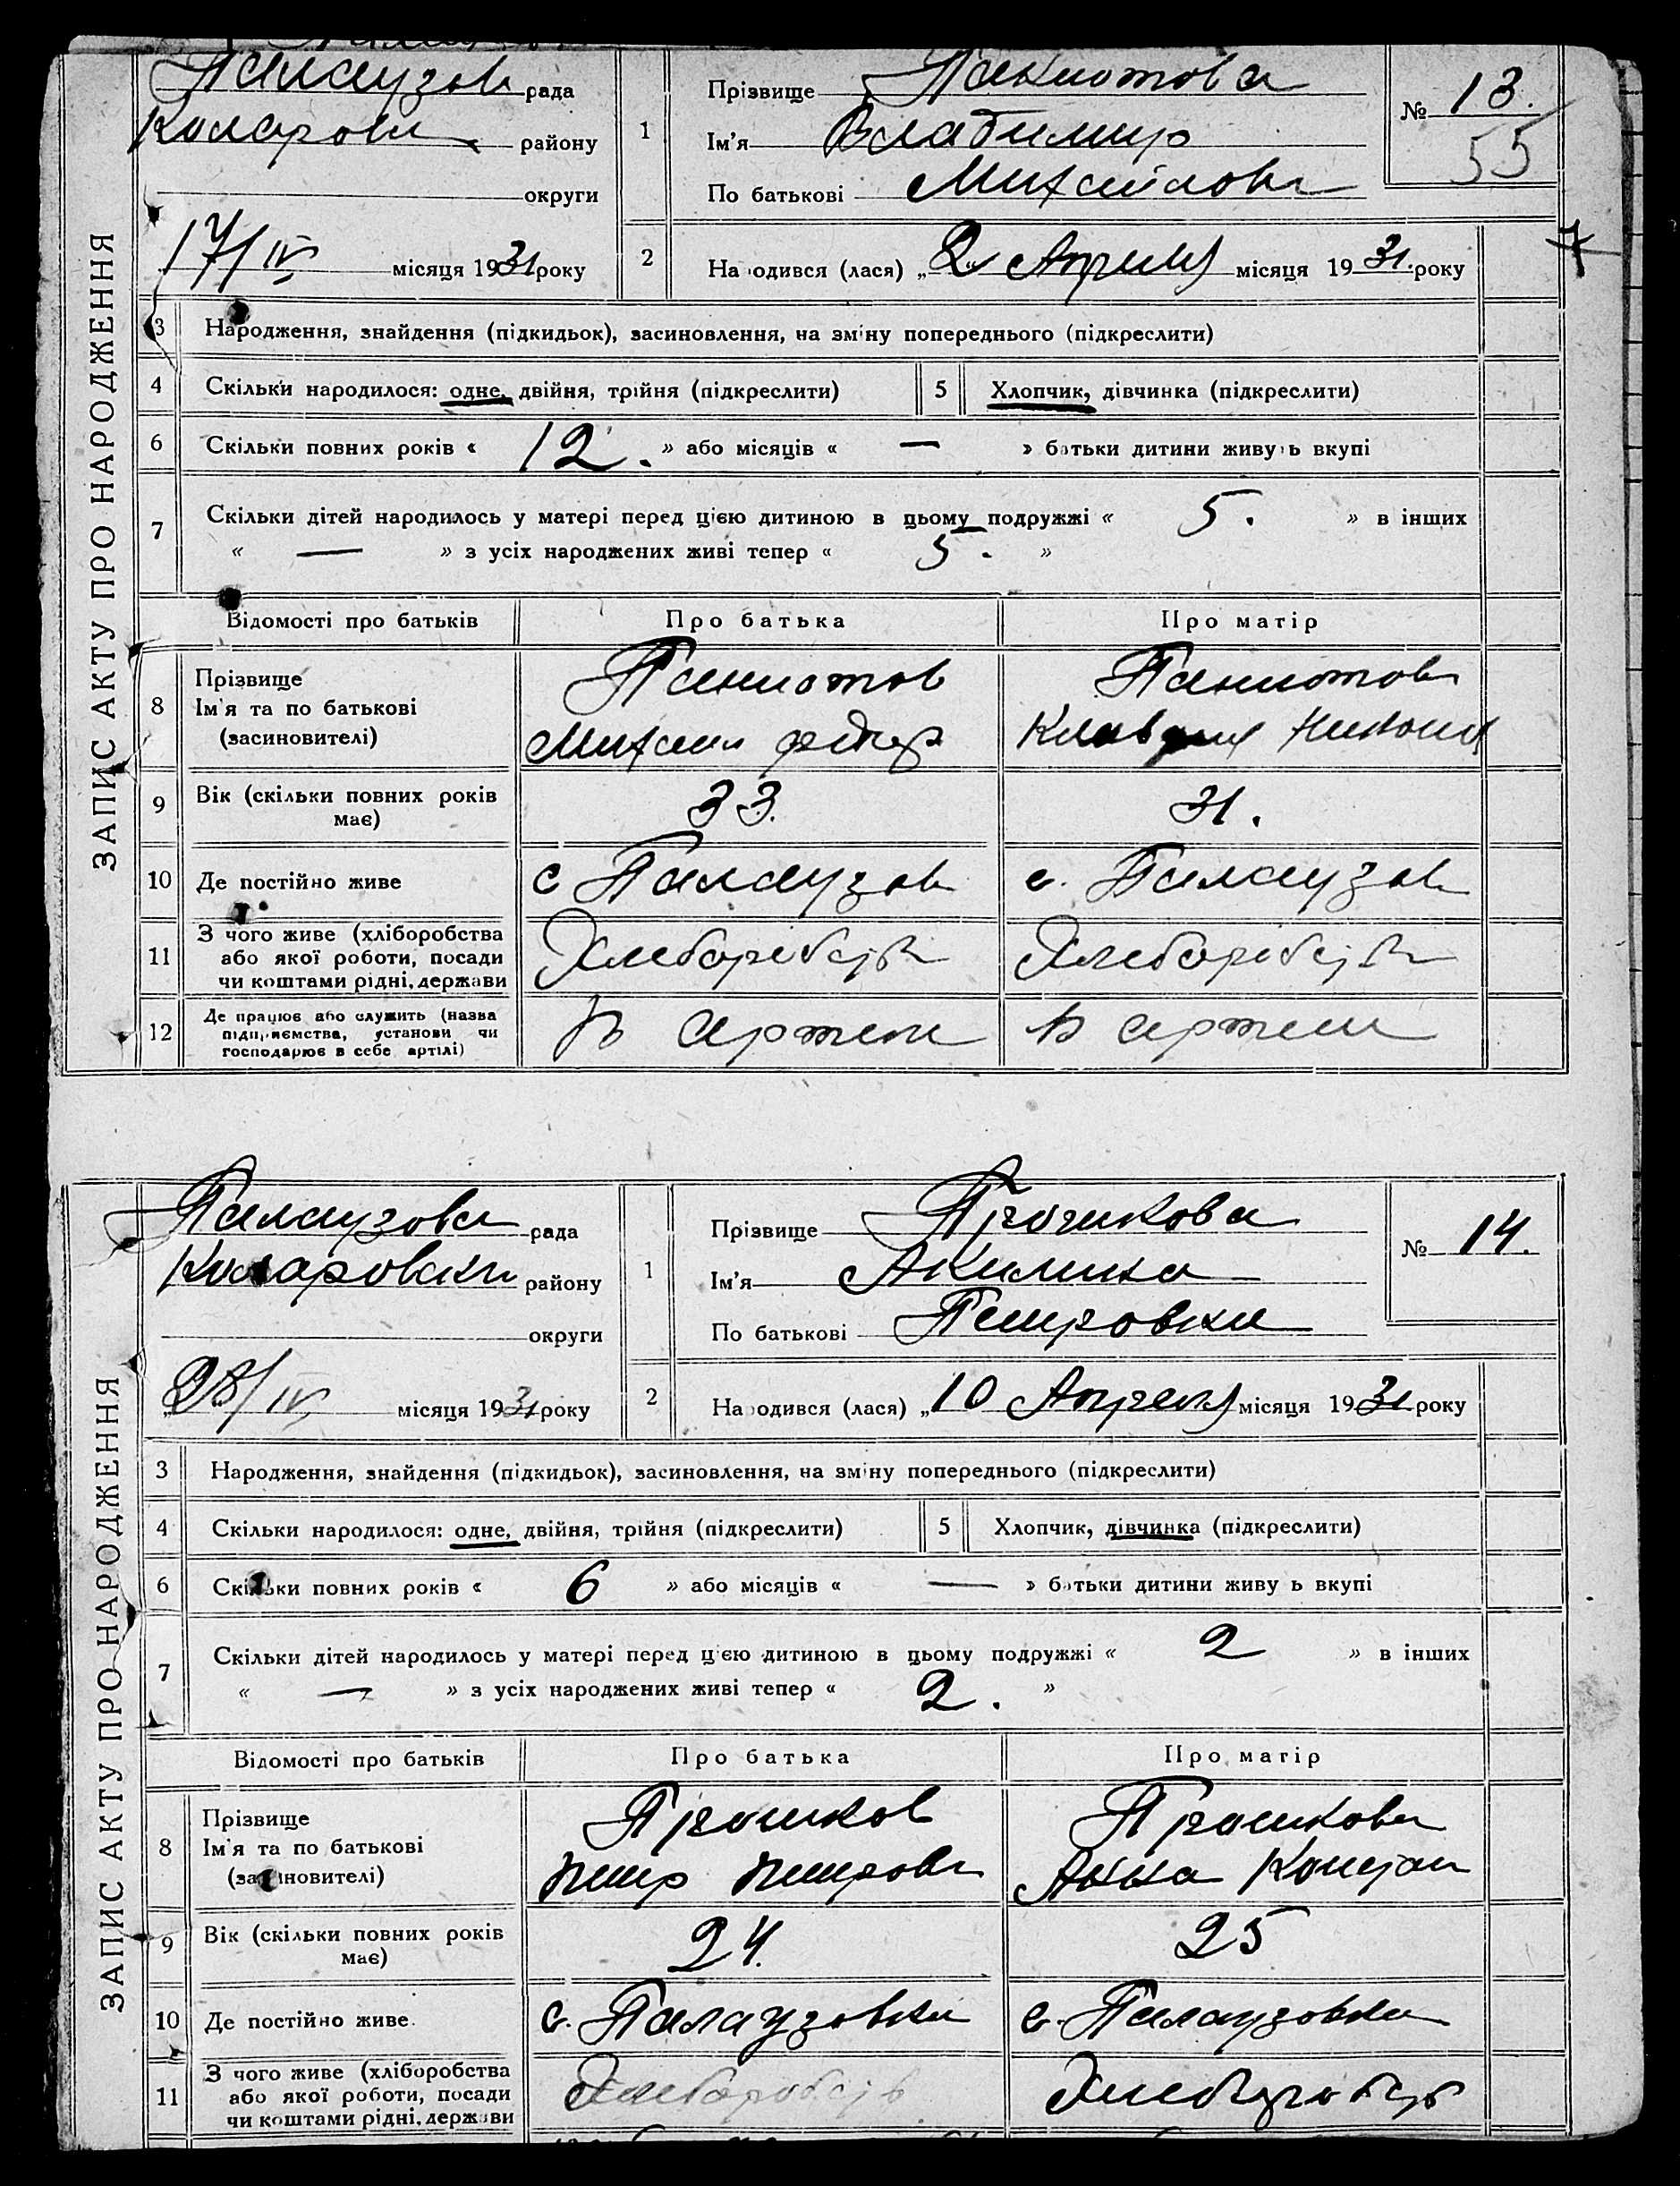 ЗАПИС АКТУ ПРО НАРОДЖЕННЯ
Палаузов рада
Коларовск району
округи
17/IV місяця 1931 року
1
Прізвище Паниотова
Ім'я Владимир
По батькові Михайлови
№ 13.
55
2
На одився (лася) „2„ Апреля місяця 1931. року
3 Народження, знайдення (підкидьок), засиновлення, на зміну попереднього (підкреслити)
4 Скільки народилося: одне, двійня, трійня (підкреслити) 5 Хлопчик, дівчинка (підкреслити)
6 Скільки повних років « 12. » або місяців « — » батьки дитини живуть вкупі
7 Скільки дітей народилось у матері перед цією дитиною в цьому подружжі « 5. » в інших
« — » з усіх народжених живі тепер « 5. »
Відомості про батьків Про батька Про матір
8 Прізвище Паниотов Паниотова
Ім'я та по батькові Михаил Федор Клавдия
(засиновителі)
9 Вік (скільки повних років має) 33. 31.
10 Де постійно живе с Палаузов с. Палаузов
11 З чого живе (хліборобства або якої роботи, посади чи коштами рідні, держави Хлеборобств Хлеборобств
12 Де працює або служить (назва підприємства, установи чи господарює в себе артілі) В артели В артели
ЗАПИС АКТУ ПРО НАРОДЖЕННЯ
Палаузова рада
Коларовски району
округи
28/IV місяця 1931 року
1
Прізвище
Ім'я Акилина
По батькові Петровна
№ 14.
2
На одився (лася) „10 Апреля місяця 1931 року
3 Народження, знайдення (підкидьок), засиновлення, на зміну попереднього (підкреслити)
4 Скільки народилося: одне, двійня, трійня (підкреслити) 5 Хлопчик, дівчинка (підкреслити)
6 Скільки повних років « 6 » або місяців « — » батьки дитини живу ь вкупі
7 Скільки дітей народилось у матері перед цією дитиною в цьому подружжі « 2 » в інших
« — » з усіх народжених живі тепер « 2. »
Відомості про батьків Про батька Про матір
8 Прізвище
Ім'я та по батькові Петр Петров Анна
(засиновителі)
9 Вік (скільки повних років має) 24. 25
10 Де постійно живе. с. Палаузовка с. Палаузовка
11 З чого живе (хліборобства або якої роботи, посади чи коштами рідні, держави Хлеборобств Хлеборобств